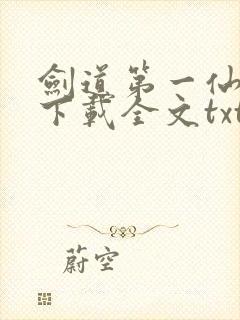 劍道第一仙
下載全文txt
蔚空